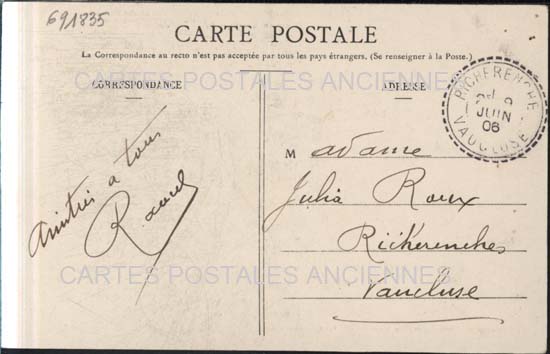 691835
CARTE POSTALE
La Correspondance au recto n'est pas acceptée par tous les pays étrangers. (Se renseigner à la Poste.)
CARTES POSTALES ANCIENNES
CORRESPONDANCE
ADRESSE
RICHERENCHE
JUIN
06
VAUCLUSE
à tous
Madame
Julia Roux
Richerenches
Vaucluse
CARTES POSTALES ANCIENNES